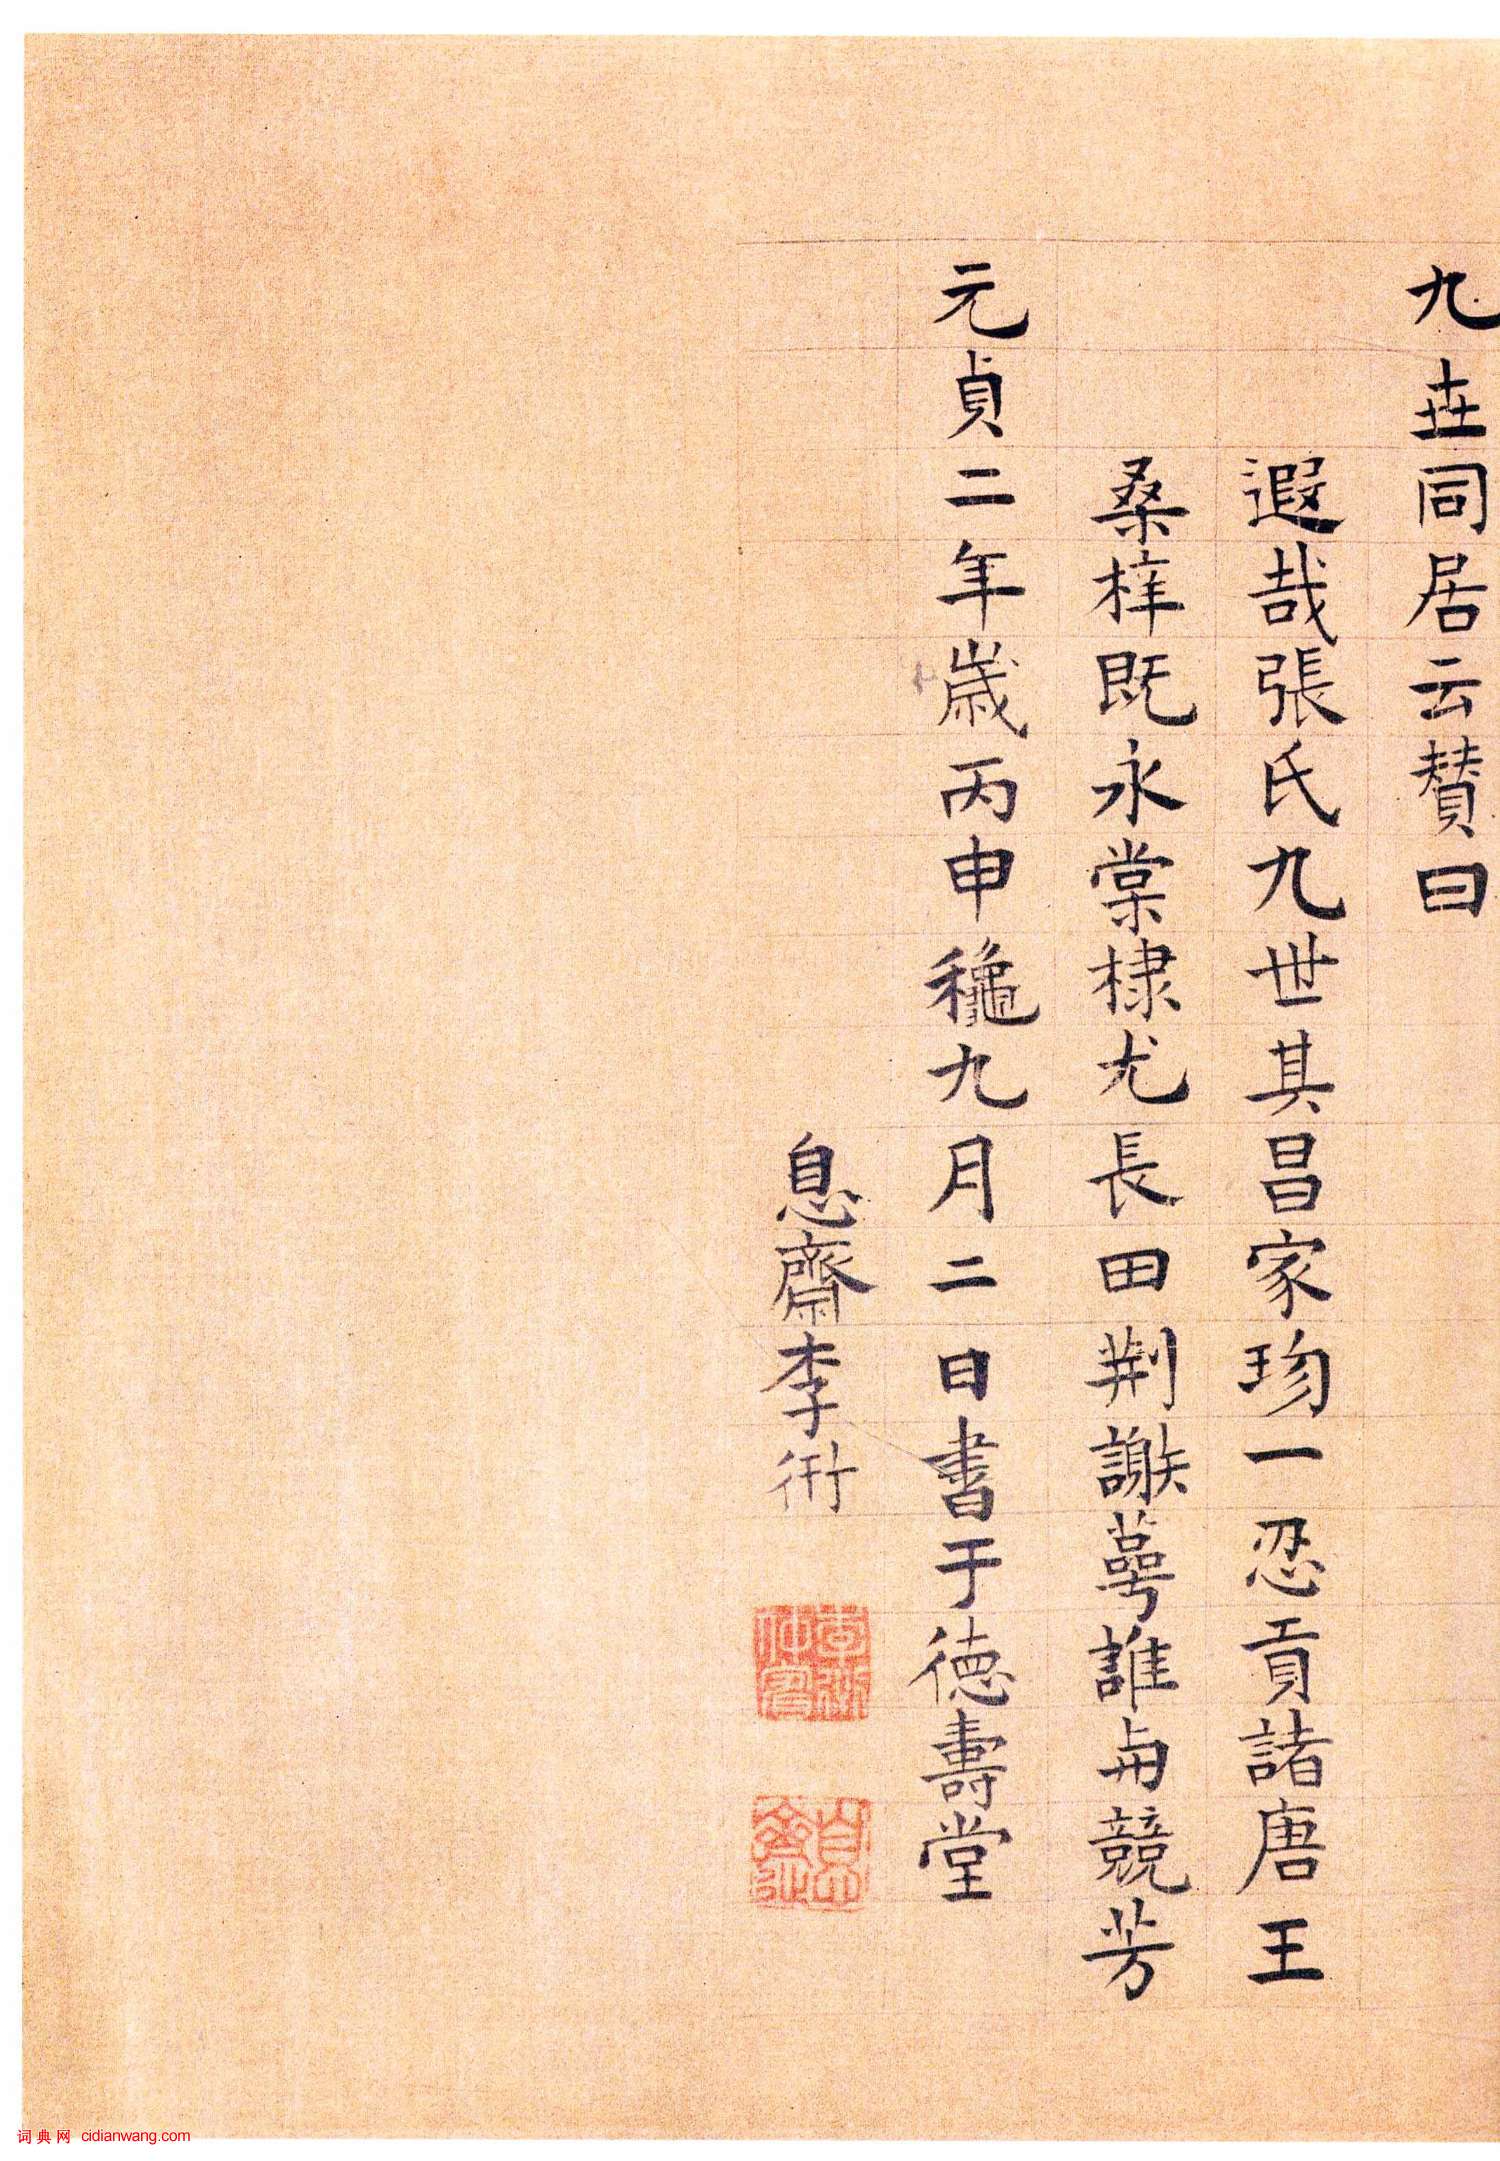 九世同居云贊曰
遐哉張氏九世其昌家珎一忍貢諸唐王
桑梓既永棠棣尤長田荆謝萼誰與競芳
元貞二年歲丙申穐九月二日書于德壽堂
息齋李衎
李衎仲賓
息齋
词典网 cidianwang.com